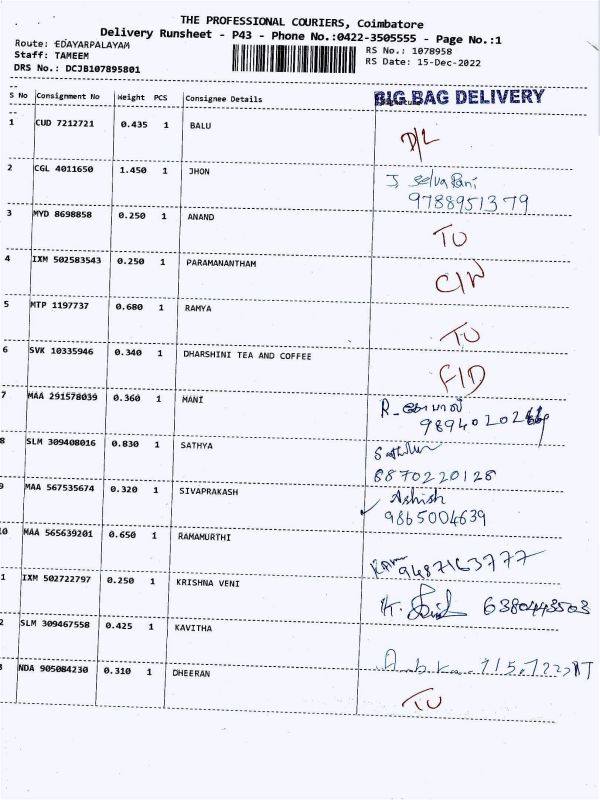 THE PROFESSIONAL COURIERS, Coimbatore
Delivery Runsheet - P43 - Phone No.:0422-3505555 - Page No.:1
Route: EDAYARPALAYAM
RS No.: 1078958
Staff: TAMEEM
RS Date: 15-Dec-2022
DRS No.: DCJB107895801
S No Consignment No Weight PCS Consignee Details BIG BAG DELIVERY
1 CUD 7212721 0.435 1 BALU D/L
2 CGL 4011650 1.450 1 JHON J Selva Rani
9788951379
3 MYD 8698858 0.250 1 ANAND TO
4 IXM 502583543 0.250 1 PARAMANANTHAM C/N
5 MTP 1197737 0.680 1 RAMYA TO
6 SVK 10335946 0.340 1 DHARSHINI TEA AND COFFEE F/D
7 MAA 291578039 0.360 1 MANI R-
8 SLM 309408016 0.830 1 SATHYA
8870220128
9 MAA 567535674 0.320 1 SIVAPRAKASH Ashish
9865004639
10 MAA 565639201 0.650 1 RAMAMURTHI 9487163777
1 IXM 502722797 0.250 1 KRISHNA VENI K. 6380443503
2 SLM 309467558 0.425 1 KAVITHA
3 NDA 905084230 0.310 1 DHEERAN TO